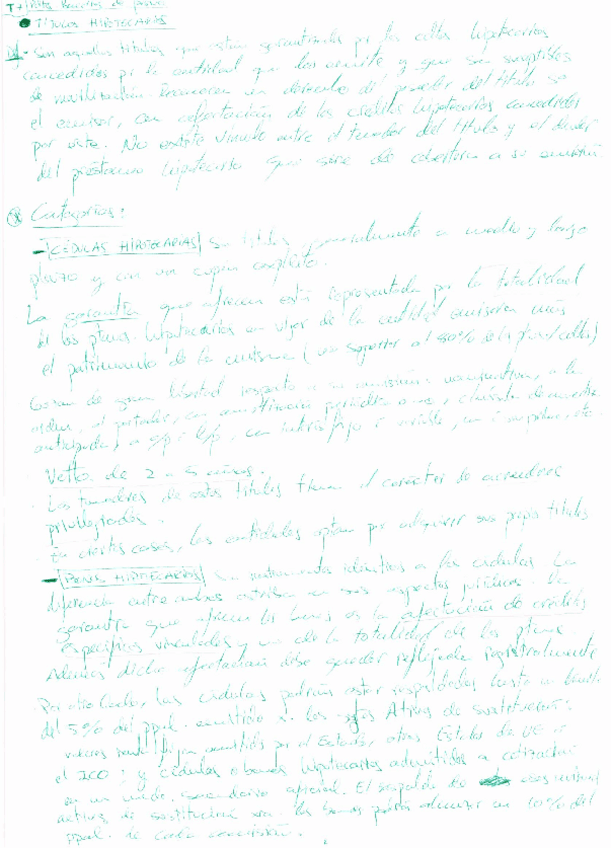 TÍTULOS HIPOTECARIOS
Son aquellos títulos que están garantizados por los créditos hipotecarios
concedidos por la entidad que los emite y que son susceptibles
de movilización. Incorporan un derecho del poseedor del título
el emisor, con afectación de los créditos hipotecarios concedidos
por éste. No existe vínculo entre el tenedor del título y el deudor
del préstamo hipotecario que sirve de cobertura a su emisión
Categorías:
- CÉDULAS HIPOTECARIAS son títulos, generalmente a medio y largo
plazo y con un cupón explícito.
La garantía que ofrecen está representada por la totalidad
de los ptmos. hipotecarios en vigor de la entidad emisora más
el patrimonio de la emisora ( superior al 80% de
Gozan de gran libertad respecto a su emisión: nominativos, a la
orden, al portador, con amortización periódica o no,
anticipada, a c/p o l/p, con interés fijo o variable,
Vtto. de 2 a 5 años.
Los tenedores de estos títulos tienen el carácter de acreedores
privilegiados.
En ciertos casos, las entidades optan por adquirir sus propios títulos
- BONOS HIPOTECARIOS Son instrumentos idénticos a las cédulas. La
diferencia entre ambos estriba en sus aspectos jurídicos. La
garantía que ofrecen los bonos es la afectación de créditos
específicos vinculados y no de la totalidad de los ptmos.
Además dicha afectación debe quedar reflejada registralmente
Por otro lado, las cédulas podrán estar respaldadas hasta un límite
del 5% del ppal. emitido por los Activos de sustitución:
valores renta fija emitidos por el Estado, otros Estados de UE o
el ICO; y cédulas o bonos hipotecarios admitidos a cotización
en un mdo. secundario oficial. El respaldo de
activos de sustitución los bonos podrá alcanzar un 10% del
ppal. de cada emisión.